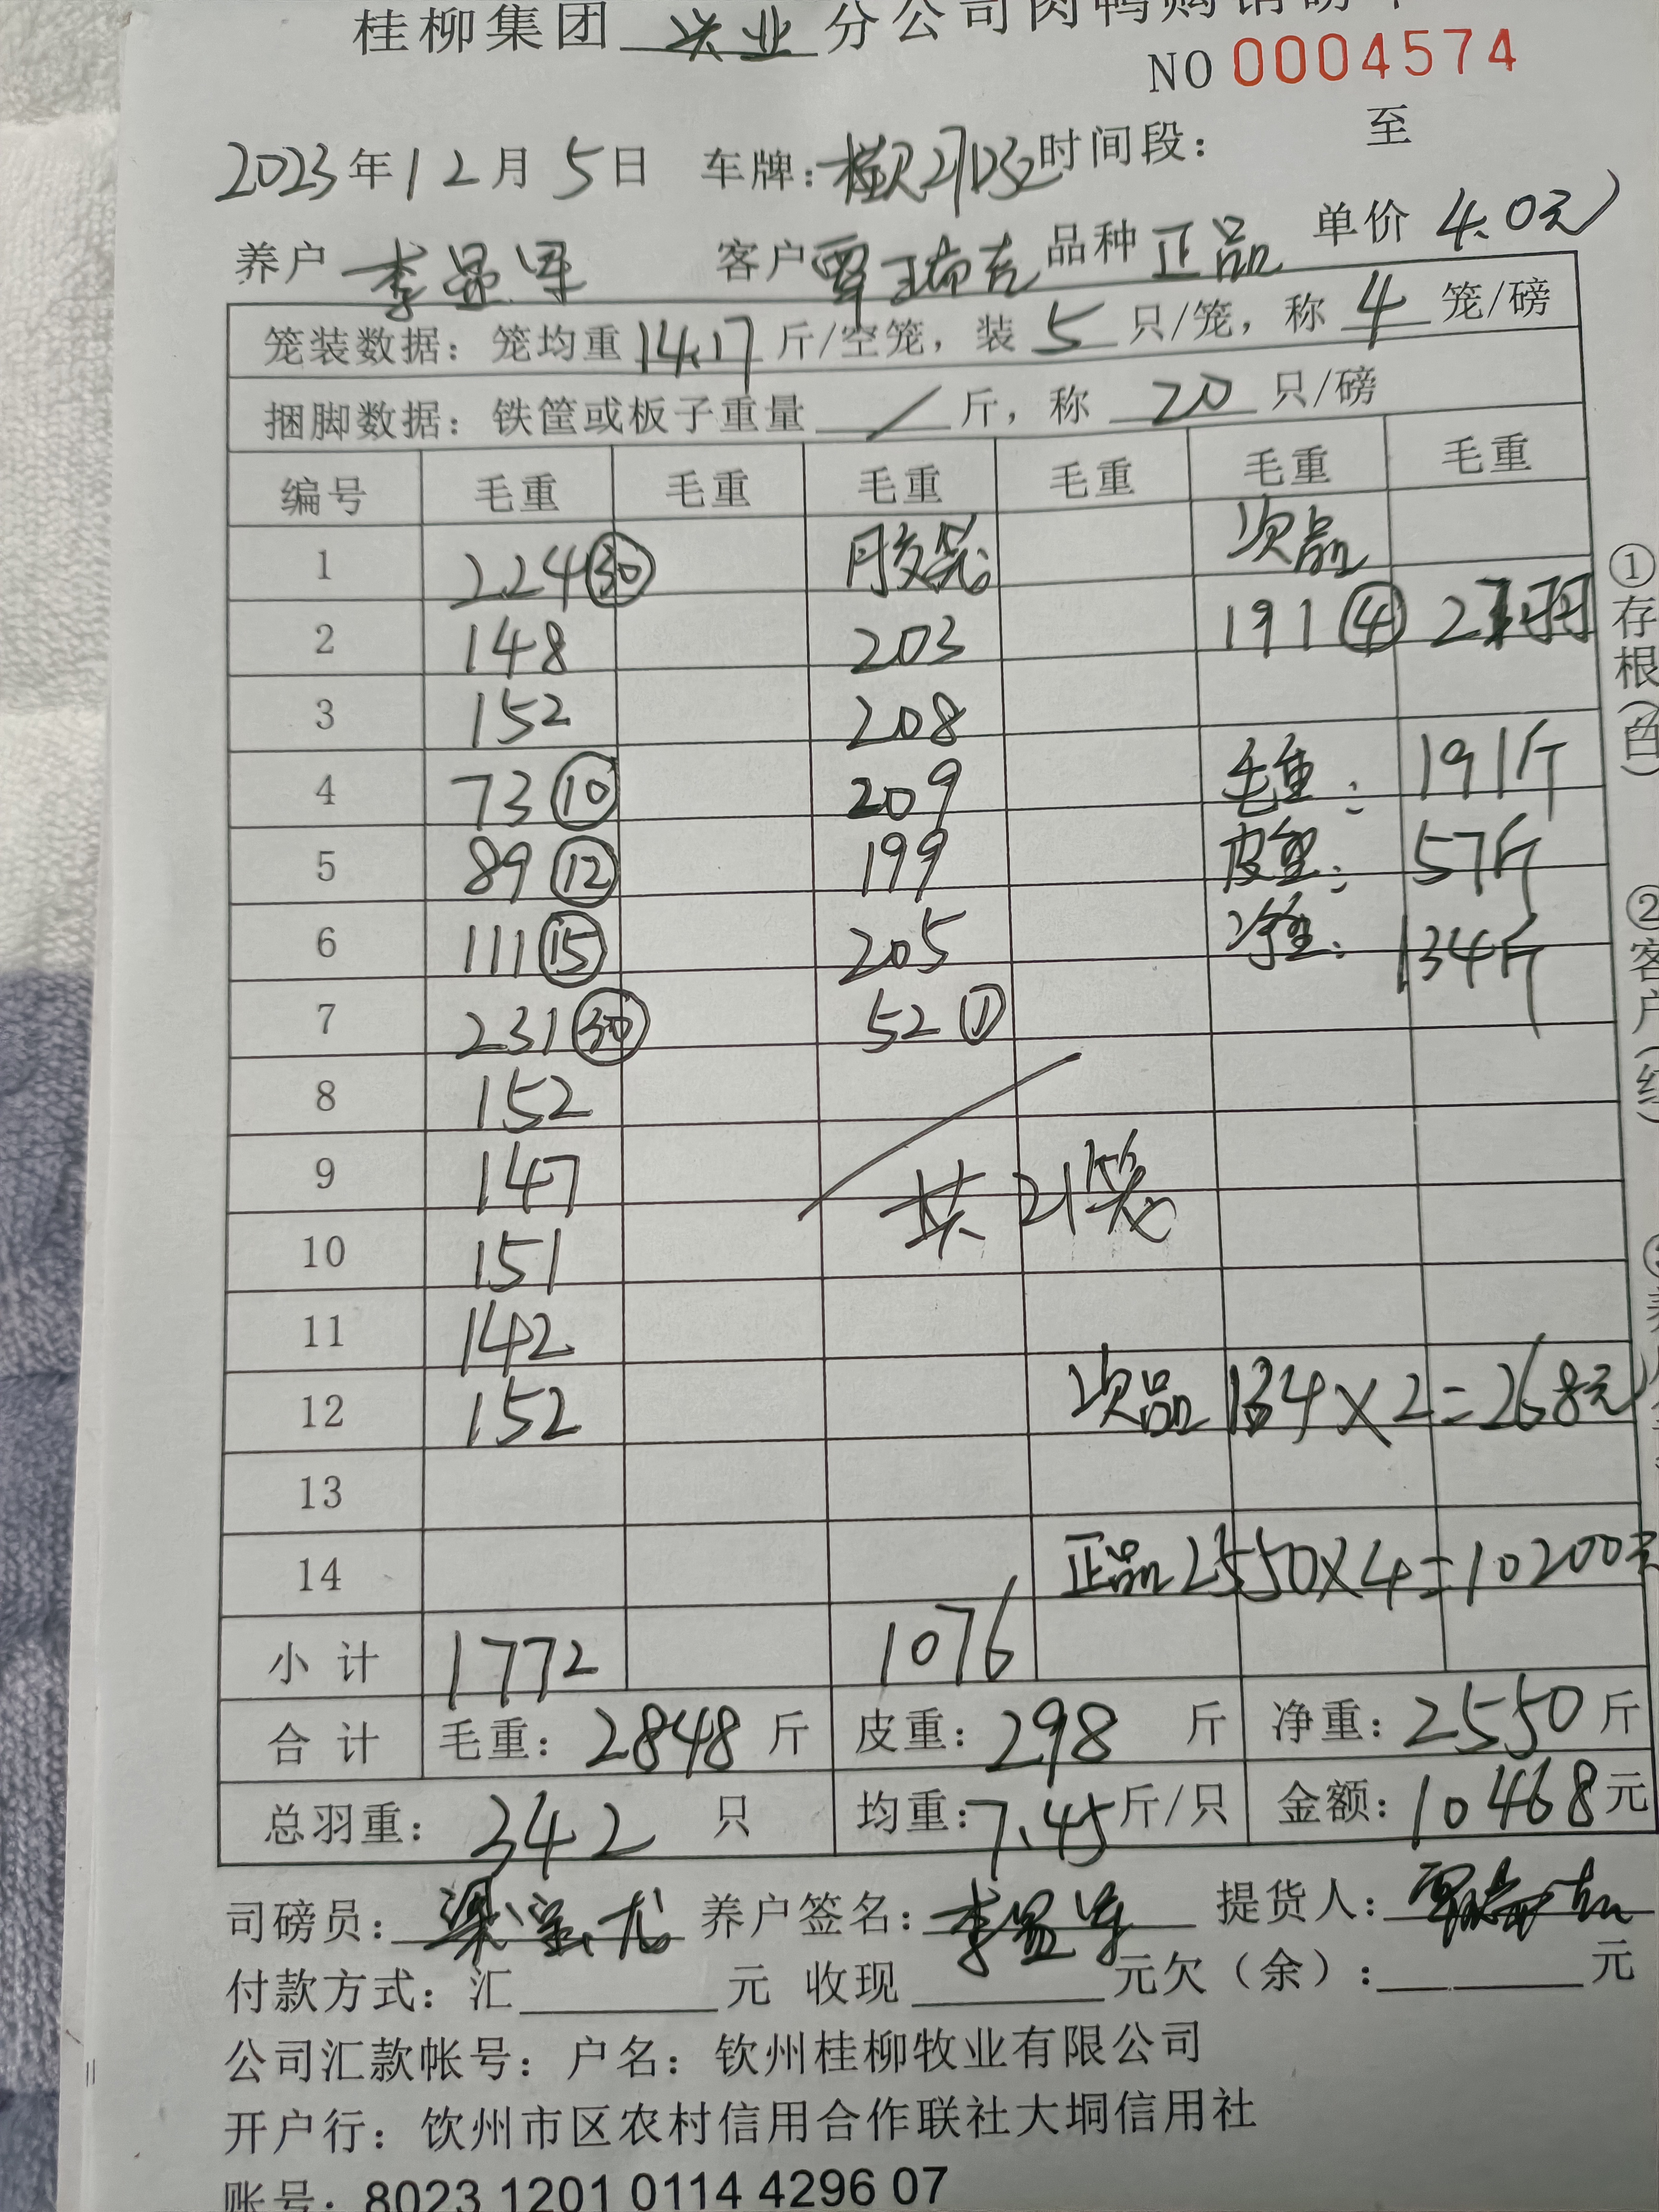 桂柳集团 兴业 分公司肉鸭购销磅单
NO 0004574
2023年12月5日 车牌: 时间段: 至
养户 李显军 客户 覃瑞克 品种 正品 单价 4.0元
笼装数据: 笼均重 14.17 斤/空笼, 装 5 只/笼, 称 4 笼/磅
捆脚数据: 铁筐或板子重量 / 斤, 称 20 只/磅
编号 毛重 毛重 毛重 毛重 毛重 毛重
1 224 ㉚ 胶笼 次品
2 148 203 191 ④ 羽
3 152 208
4 73 ⑩ 209 毛重: 191斤
5 89 ⑫ 199 皮重: 57斤
6 111 ⑮ 205 净重: 134斤
7 231 ㉚ 52 ①
8 152
9 147 共21笼
10 151
11 142
12 152 次品 134×2=268元
13
14 正品 2550×4=10200元
小计 1772 1076
合计 毛重: 2848 斤 皮重: 298 斤 净重: 2550 斤
总羽重: 342 只 均重: 7.45 斤/只 金额: 10468 元
司磅员: 梁宝龙 养户签名: 李显军 提货人: 覃瑞克
付款方式: 汇 元 收现 元欠(余): 元
公司汇款帐号: 户名: 钦州桂柳牧业有限公司
开户行: 钦州市区农村信用合作联社大垌信用社
账号: 8023 1201 0114 4296 07
①存根(白)
②客户(红)